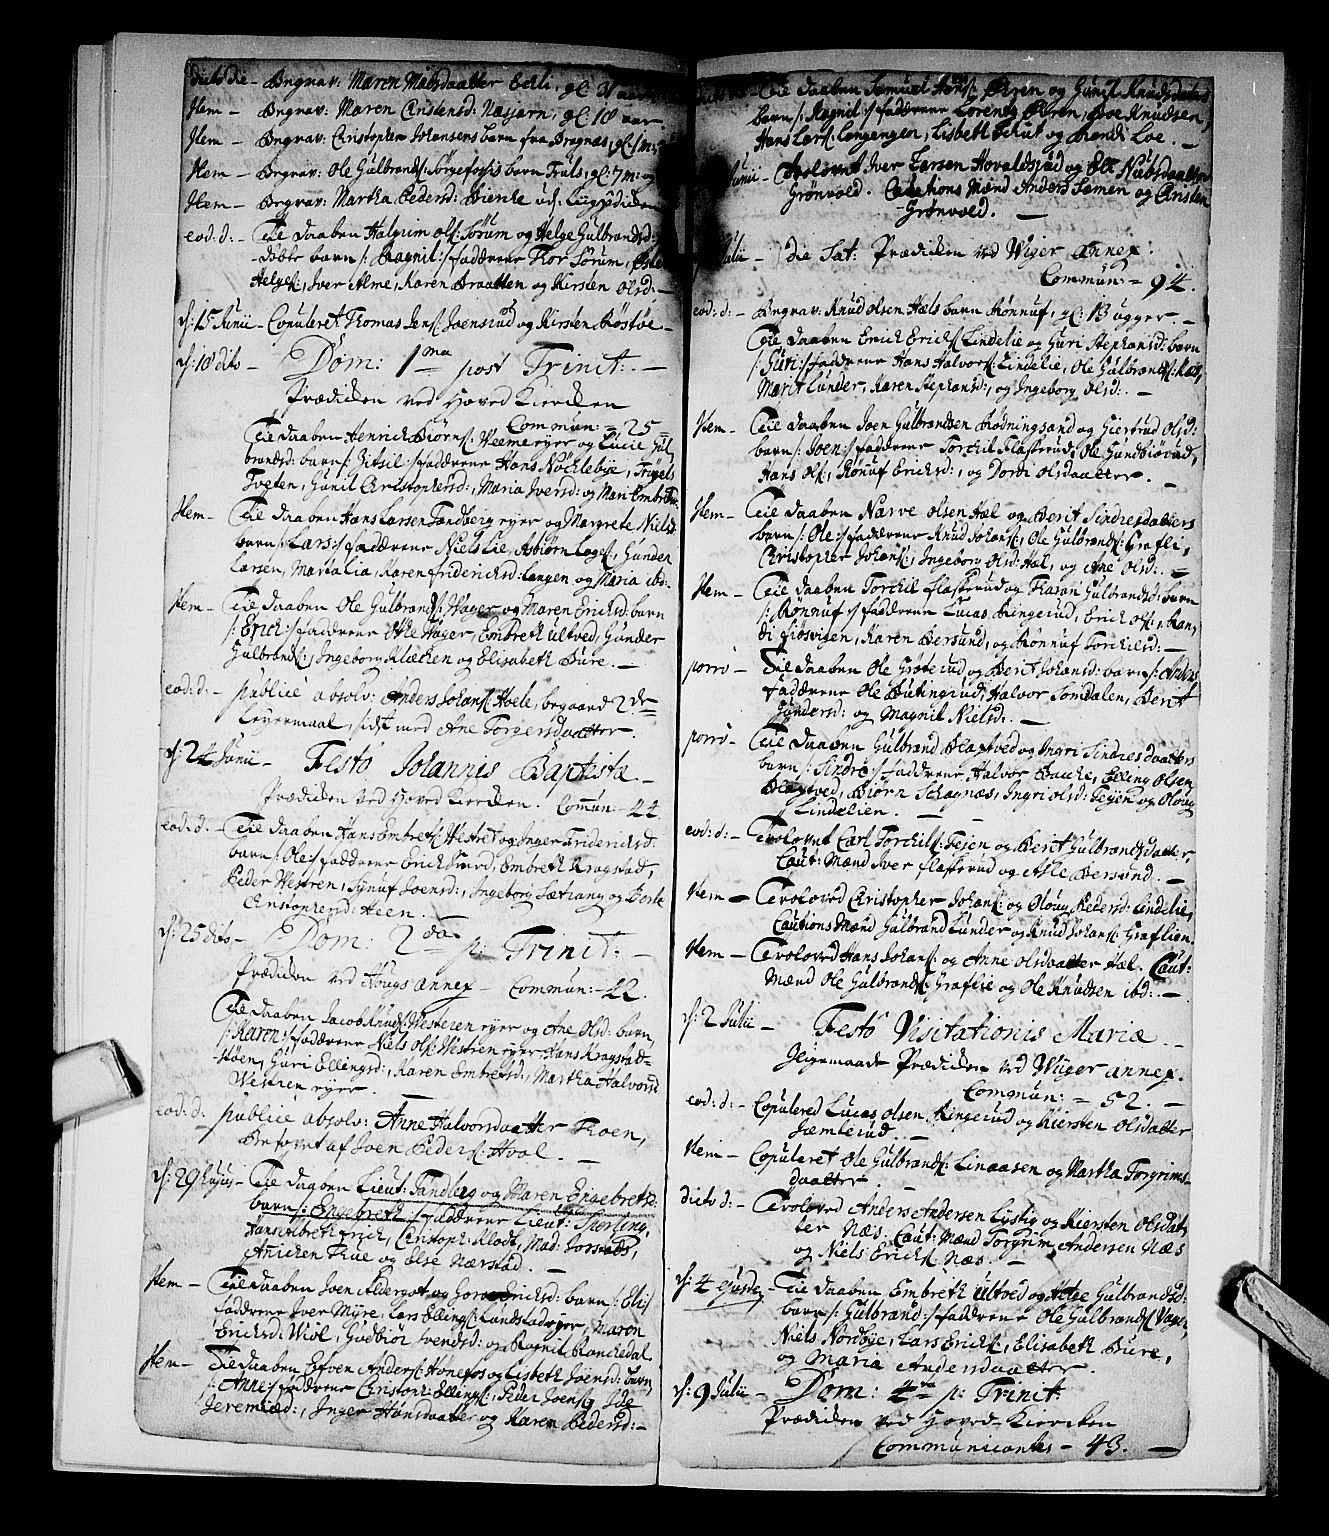 dicto die - Begrav: Maren Madsdaatter Eckli, gl: 31 aar
Item - Begrav: Maren Cristensd: Næsjarn, gl: 18 aar.
Item - Begrav: Cristopher Johansens barn fra Bragnæs, gl: 1 m:
Item - Begrav: Ole Gulbrands: Sørgefos barn Truls, gl: 7 m: og
Item - Begrav: Martha Peders: Bienke ud:
eod: d: - Till daaben Halgrim ols: Sørum og Helge Gulbrandsd:
døbte barn /: Bragnil :/ fadderne Thor Sørum,
Helges:, Iver Alme, Karen Braatten og Kirsten Olsd: -
d: 15 Junii - Copuleret Thomas Jens: Joensrud og Kirsten Røstøe -
d: 18 dito - Dom: 1ma post Trinit: -
Prædiken ved Hoved Kiercken
Commun: = 25 =
Till daaben Henrich Biørns: Weme ejer og Lucie Gul
brandsd: barn /: Zitsil :/ fadderne Hans Nøcklebye, Trugels
Tveten, Gunil Christophersd:, Maria Iversd: og Mari Embretsd:
Item - Till daaben Hans Larsen Tandberg ejer og Margrete Nielsd:
barn /: Lars :/ fadderne Niels Lie, Asbiørn Loges:, Gunder
Larsen, Martalia, Karen Friderichsd: Langen og Maria ibd:
Item - Till daaben Ole Gulbrands: Hager og Maren Ericksd: barn
/: Erich :/ fadderne Otte Hager, Embreth Ultved, Gunder
Gulbrands:, Ingeborg Klæcken og Elisabeth Bure. -
eod: d: - publicè absolv: Anders Johans: Hoele, begaaed 2 de
Leyermaal, sidst med Ane Torgersdaatter.
d: 24 Junii - Festo Johannis Baptistæ -
Prædiken ved Hoved Kiercken. Comun: - 44.
eod: d. - Till daaben Hans Embrets: Westret og Inger Friderichsd:
barn /: Ole :/ fadderne Erich Hverd, Embreth Kragstad,
Peder Westren, Synuf Joensd:, Ingeborg Sætrang og Berte
Cristophersd: Heen. -
d: 25 dito - Dom: 2da p: Trinit: -
Prædiken ved Hougs annex - Commun: - 22.
Till daaben Jacob Knuds: Westeren ejer og Ane Olsd: barn,
/: Karen :/ fadderne Niels Ols: Westren ejer Hans Kragstad-
støen, Guri Ellengsd:, Karen Embretsd:, Martha Halvorsd
Westren ejer. -
eod: d. publicè absolv: Anne Halvorsdaatter Moen,
Besovet af Joen Peders: Hval. -
d: 29 - Till daaben Lieut: Tandberg og Maren Engebretsd:
barn /: Engebreth :/ fadderne Lieut: Sperling,
Hans Albreth Erich, Cristoph: Klodt, Mad: Jorstads,
Anicken Thue og Else Nærstad. -
Item - Till daaben Joen Aldergot og Ericksd: barn /: Eli :/
fadderne Iver Myre, Lars Ellings: Lundstadejer, Maren
Ericksd: Wiol, Gudbior Svendsd: og Ragnil Blanckedal
Item - Till daaben Esfven Anders: Hønefos og Lisbeth Joensd: barn,
/: Anne :/ fadderne Cristoph: Ellings:, Peder Joens:, Ide
Jeremiæd:, Inger Hansdaatter og Karen Pedersd: -
dicto d: - Till daaben Samuel Hans: Øren og Gunil Knudsdatter
barn /: Ragnil :/ fadderne Lorentz Øren, Boe Knudsen,
Hans Lars: Langengen, Lisbeth Schut og Randi Loe. -
Junii - Trolovet Iver Larsen Hovaldsrud og Else Nubsdaatter
Grønvold. Cautions Mænd Anders Semen og Cristen
Grønvold. -
Julii - die Sat: Prædiken ved Wiger annex:
Commun: = 94.
eod: d: - Begrav: Knud Olsen Hæls barn Rønnuf, gl: 13 uger. -
Till daaben Erick Ericks: Lindelie og Guri Stephansd: barn
/: Guri :/ fadderne Hans Halvors: Lindelie, Ole Gulbrands: Næs,
Marit Lunder, Karen Stephansd:, og Ingeborg Olsd: -
Item - Till daaben Joen Gulbrandsen Rødningsand og Giertrud Olsd:
barn /: Joen :/ fadderne Torchil Flaskerud, Ole Gundbiørud,
Hans Ols:, Rønuf Ericksd:, og Dordi Olsdaatter. -
Item - Till daaben Narve Olsen Hæl og Berit Sindresdatters
barn /: Ole :/ fadderne Knud Johans:, Ole Gulbrands: Grafli,
Christopher Johans:, Ingeborg Olsd: Hæl, og Ane Olsd: -
Item - Till daaben Torchil Flaskerud og Giaran Gulbrandsd: barn
/: Rønnuf :/ fadderne Lucas Ringerud, Erick Ols:, Ran,
di Fiøsvigen, Karen Bersund, og Rønnuf Torchilsd: -
porrò - Till daaben Ole Grøterud og Berit Johansd: barn /: Anders :/
fadderne Ole Butingrud, Halvor Somdalen, Berit
Gundersd: og Magnil Nielsd: -
porrò - Till daaben Gulbrand Blagtved og Ingri Sindresdaatters
barn /: Sindre :/ fadderne Halvor Bache, Elling Olsen
Blagtved, Biørn Schagnæs, Ingri Olsd: Tejen og Oloug
Lindelien. -
eod: d: - Trolovet Carl Torchils: Tejen og Berit Gulbrandsdatter,
Caut: Mænd Iver Flaskerud og Asle Bersund. -
Item - Troloved Christopher Johans: og Oloug Pedersd: Lindelie,
Cautions Mænd Gulbrand Lunder og Knud Johans: Graflien.
Item - Troloved Hans Johans: og Anne Olsdaatter Hæl. Caut:
Mænd Ole Gulbrands: Graflie og Ole Knudsen ibd: -
d: 2 Julii - Festo Visitationis Mariæ. -
Ligemaade Prædiken ved Wiger annex.
Commun: = 52. -
eod: d: - Copulered Lucas Olsen Ringerud og Kiersten Olsdatter
Semlerud. -
Item - Copuleret Ole Gulbrands: Linaasen og Martha Torgrims-
daatter. -
dicto d: - Troloved Anders Andersen Lystig og Kiersten Olsdat,
ter Næs. Caut: Mænd Torgrim Andersen Næs
og Niels Ericks: Næs. -
d: 4 ejusdem - Till daaben Embreth Ultved og Helge Gulbrandsd:
barn /: Gulbrand :/ fadderne Ole Gulbrands: Hager,
Niels Nordbye, Lars Ericks:, Elisabeth Bure,
og Maria Andersdaatter.
d: 9 Julii - Dom: 4ta p: Trinit:
Prædiken ved Hoved-Kiercken
Communicantes - 43. -